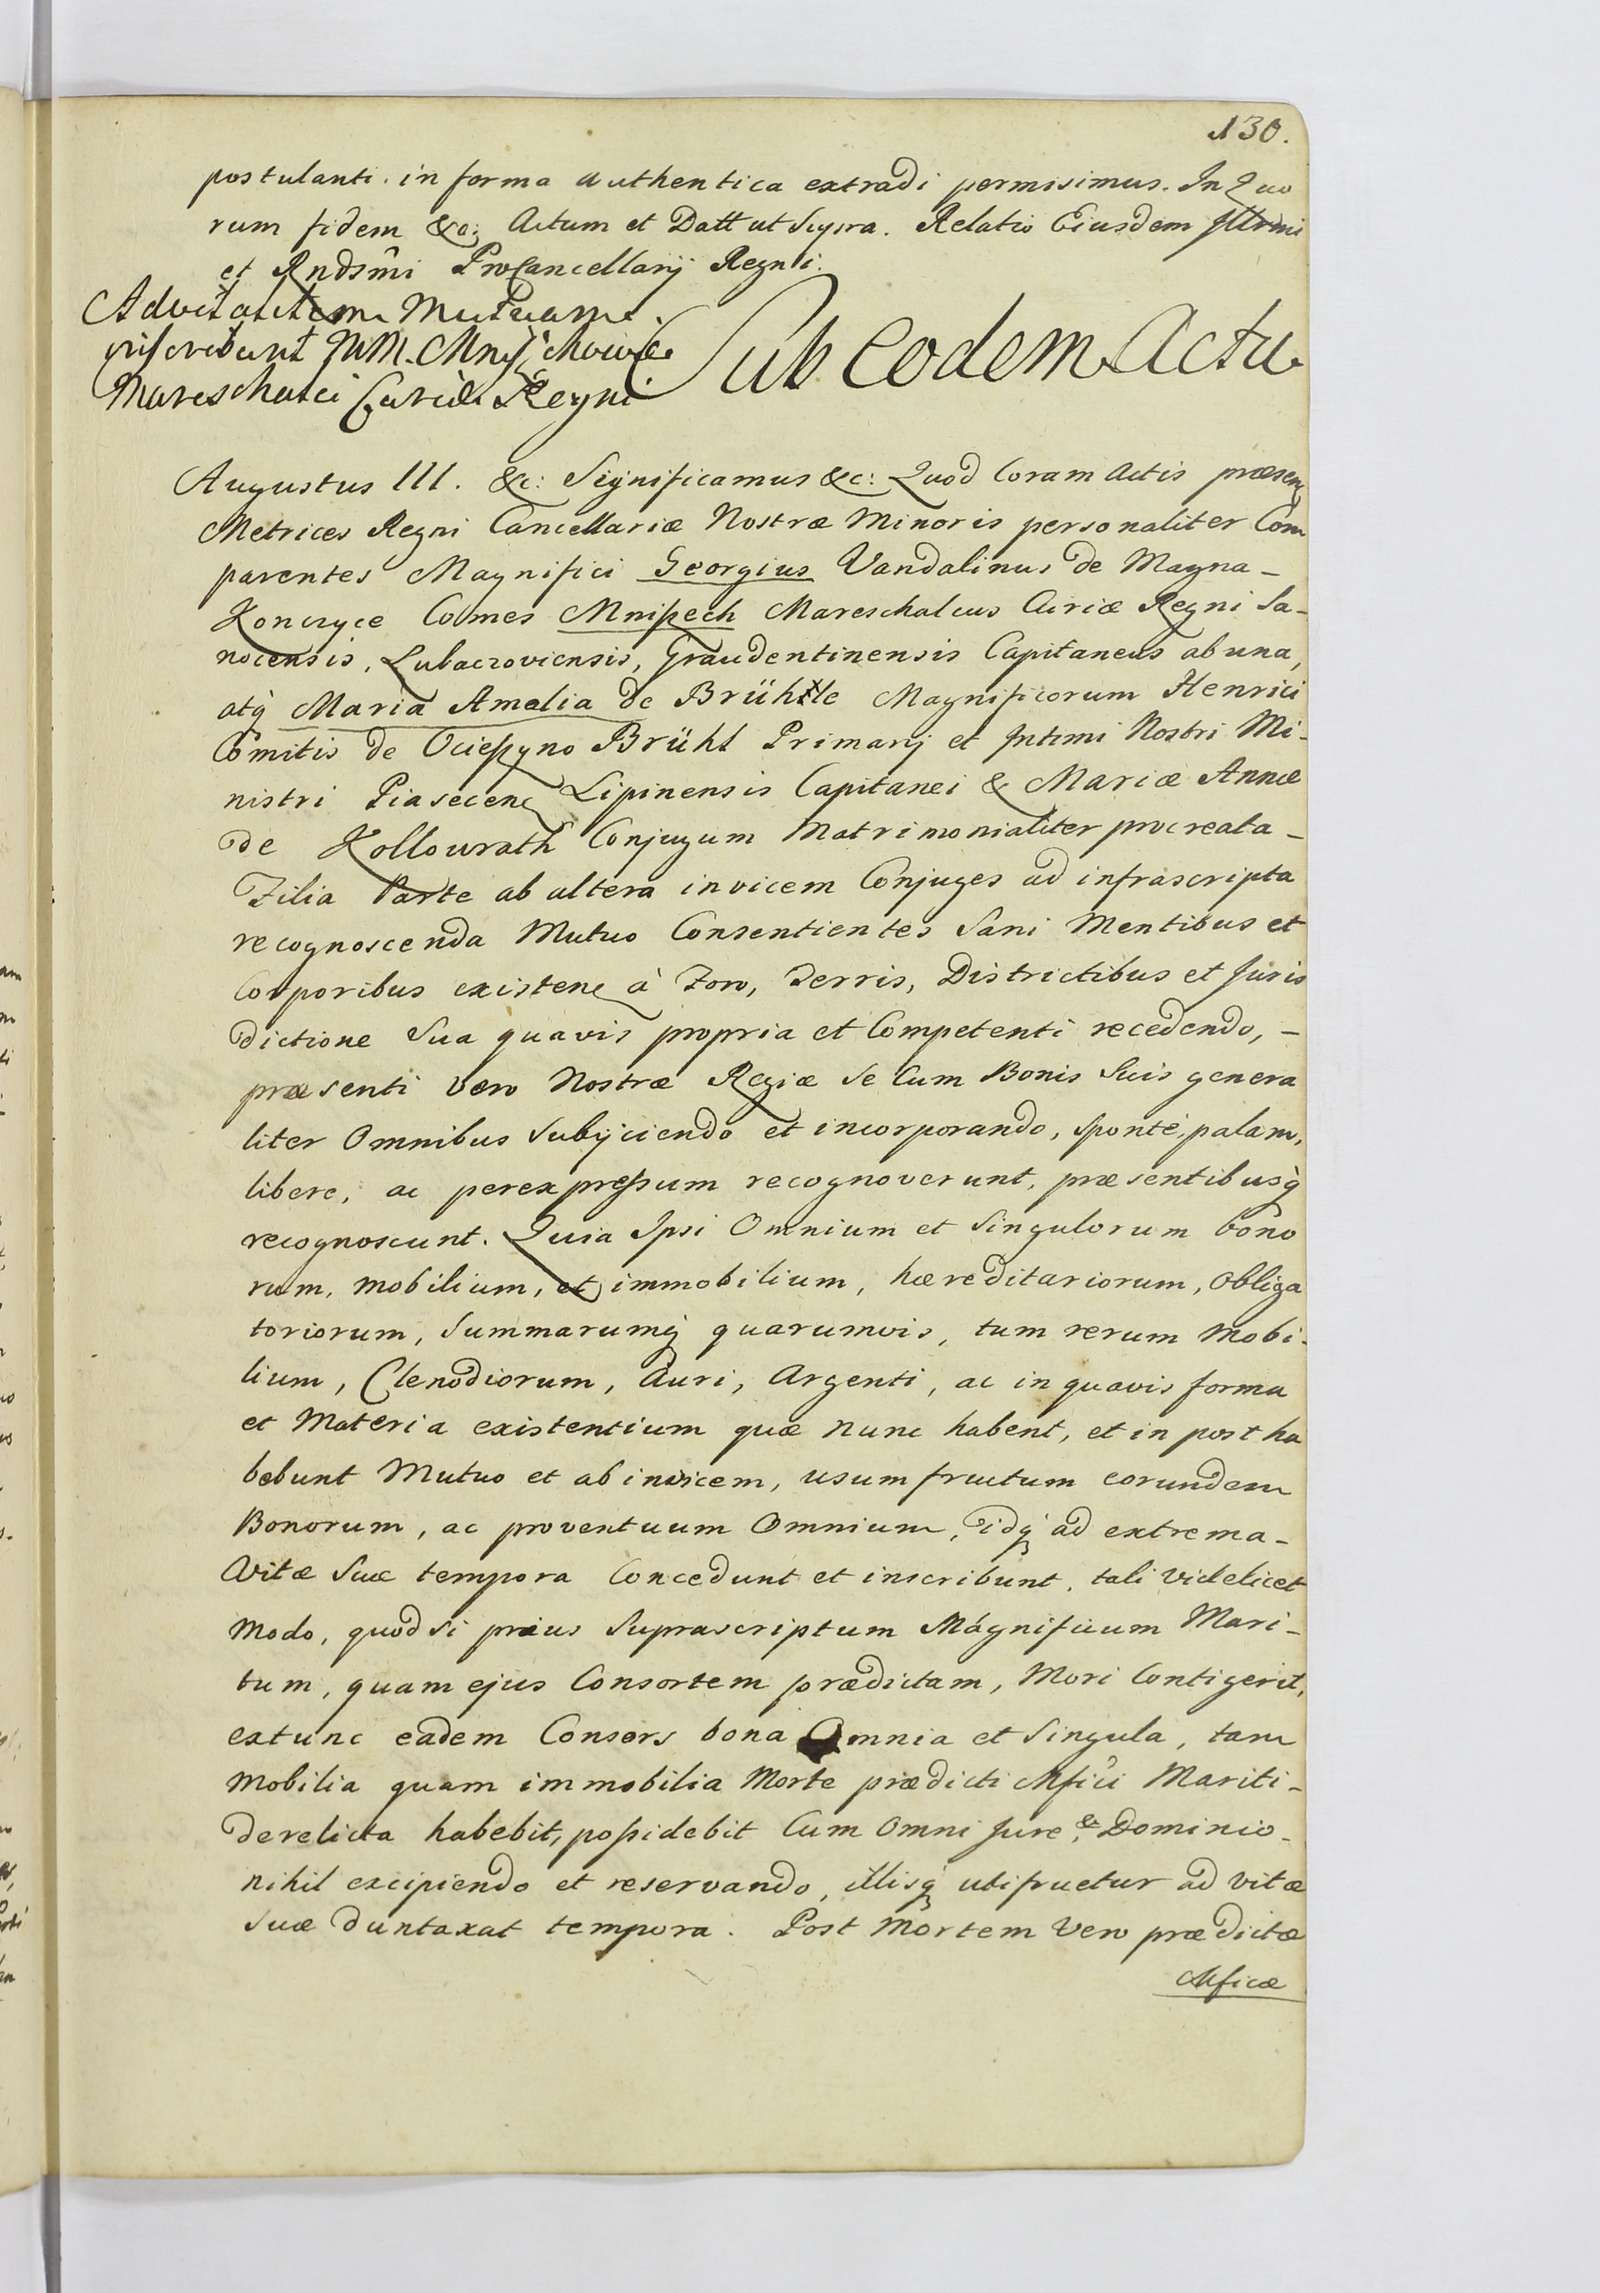 130.
postulanti in forma authentica extradi permisimus. In Quo
rum fidem &c: Actum et Datt ut Supra. Relatio Eiusdem Illrmi
et Rndsmi ProCancellarij Regni.
Advitalitatem Mutuam
inscribunt JWM. Mnij
Mareschalci Curiæ Regni
Sub Eodem Actu
Augustus III. &c: Significamus &c: Quod Coram Actis præsen
Metrices Regni Cancellariæ Nostræ Minoris personaliter Com
parentes Magnifici Georgius Vandalinus de Magna –
Konczyce Comes Mniszech Mareschalcus Curiæ Regni Sa-
nocensis, Lubaczoviensis, Graudentinensis Capitaneus ab una,
atq̀ Maria Amelia de Brühle Magnificorum Henrici
Comitis de Ocieszyno Brühl Primarij et Intimi Nostri Mi-
nistri Piasecen Lipinensis Capitanei & Mariæ Annæ
de Kollowrath Conjugum Matrimonialiter procreata –
Filia Parte ab altera invicem Conjuges ad infrascripta
recognoscenda Mutuo Consentientes Sani Mentibus et
Corporibus existen à Foro, Terris, Districtibus et Juris
dictione Sua quavis propria et Competenti recedendo, –
præsenti vero Nostræ Regiæ Se Cum Bonis Suis genera
liter Omnibus Subijciendo et incorporando, Sponté, palam,
libere, ac perexpressum recognoverunt, præsentibusq̀
recognoscunt. Quia Ipsi Omnium et Singulorum bono
rum, mobilium, et immobilium, hæreditariorum, Obliga
toriorum, Summarumq̀ quarumvis, tum rerum Mobi-
lium, Clenodiorum, Auri, Argenti, ac in quavis forma
et Materia existentium quæ nunc habent, et in post ha
bebunt Mutuo et ab invicem, usumfructum eorundem
Bonorum, ac proventuum Omnium, idq̀ ad extrema –
Vitæ Suæ tempora Concedunt et inscribunt, tali videlicet
Modo, quod si prius Suprascriptum Mágnificum Mari-
tum, quam ejus Consortem prædictam, Mori Contigerit,
extunc eadem Consors bona Omnia et Singula, tam
Mobilia quam immobilia Morte prædicti Mfici Mariti –
derelicta habebit, possidebit Cum Omni Jure & Dominio –
nihil excipiendo et reservando, illisq̀ utifruetur ad Vitæ
Suæ duntaxat tempora. Post Mortem Vero prædictæ
Mficæ